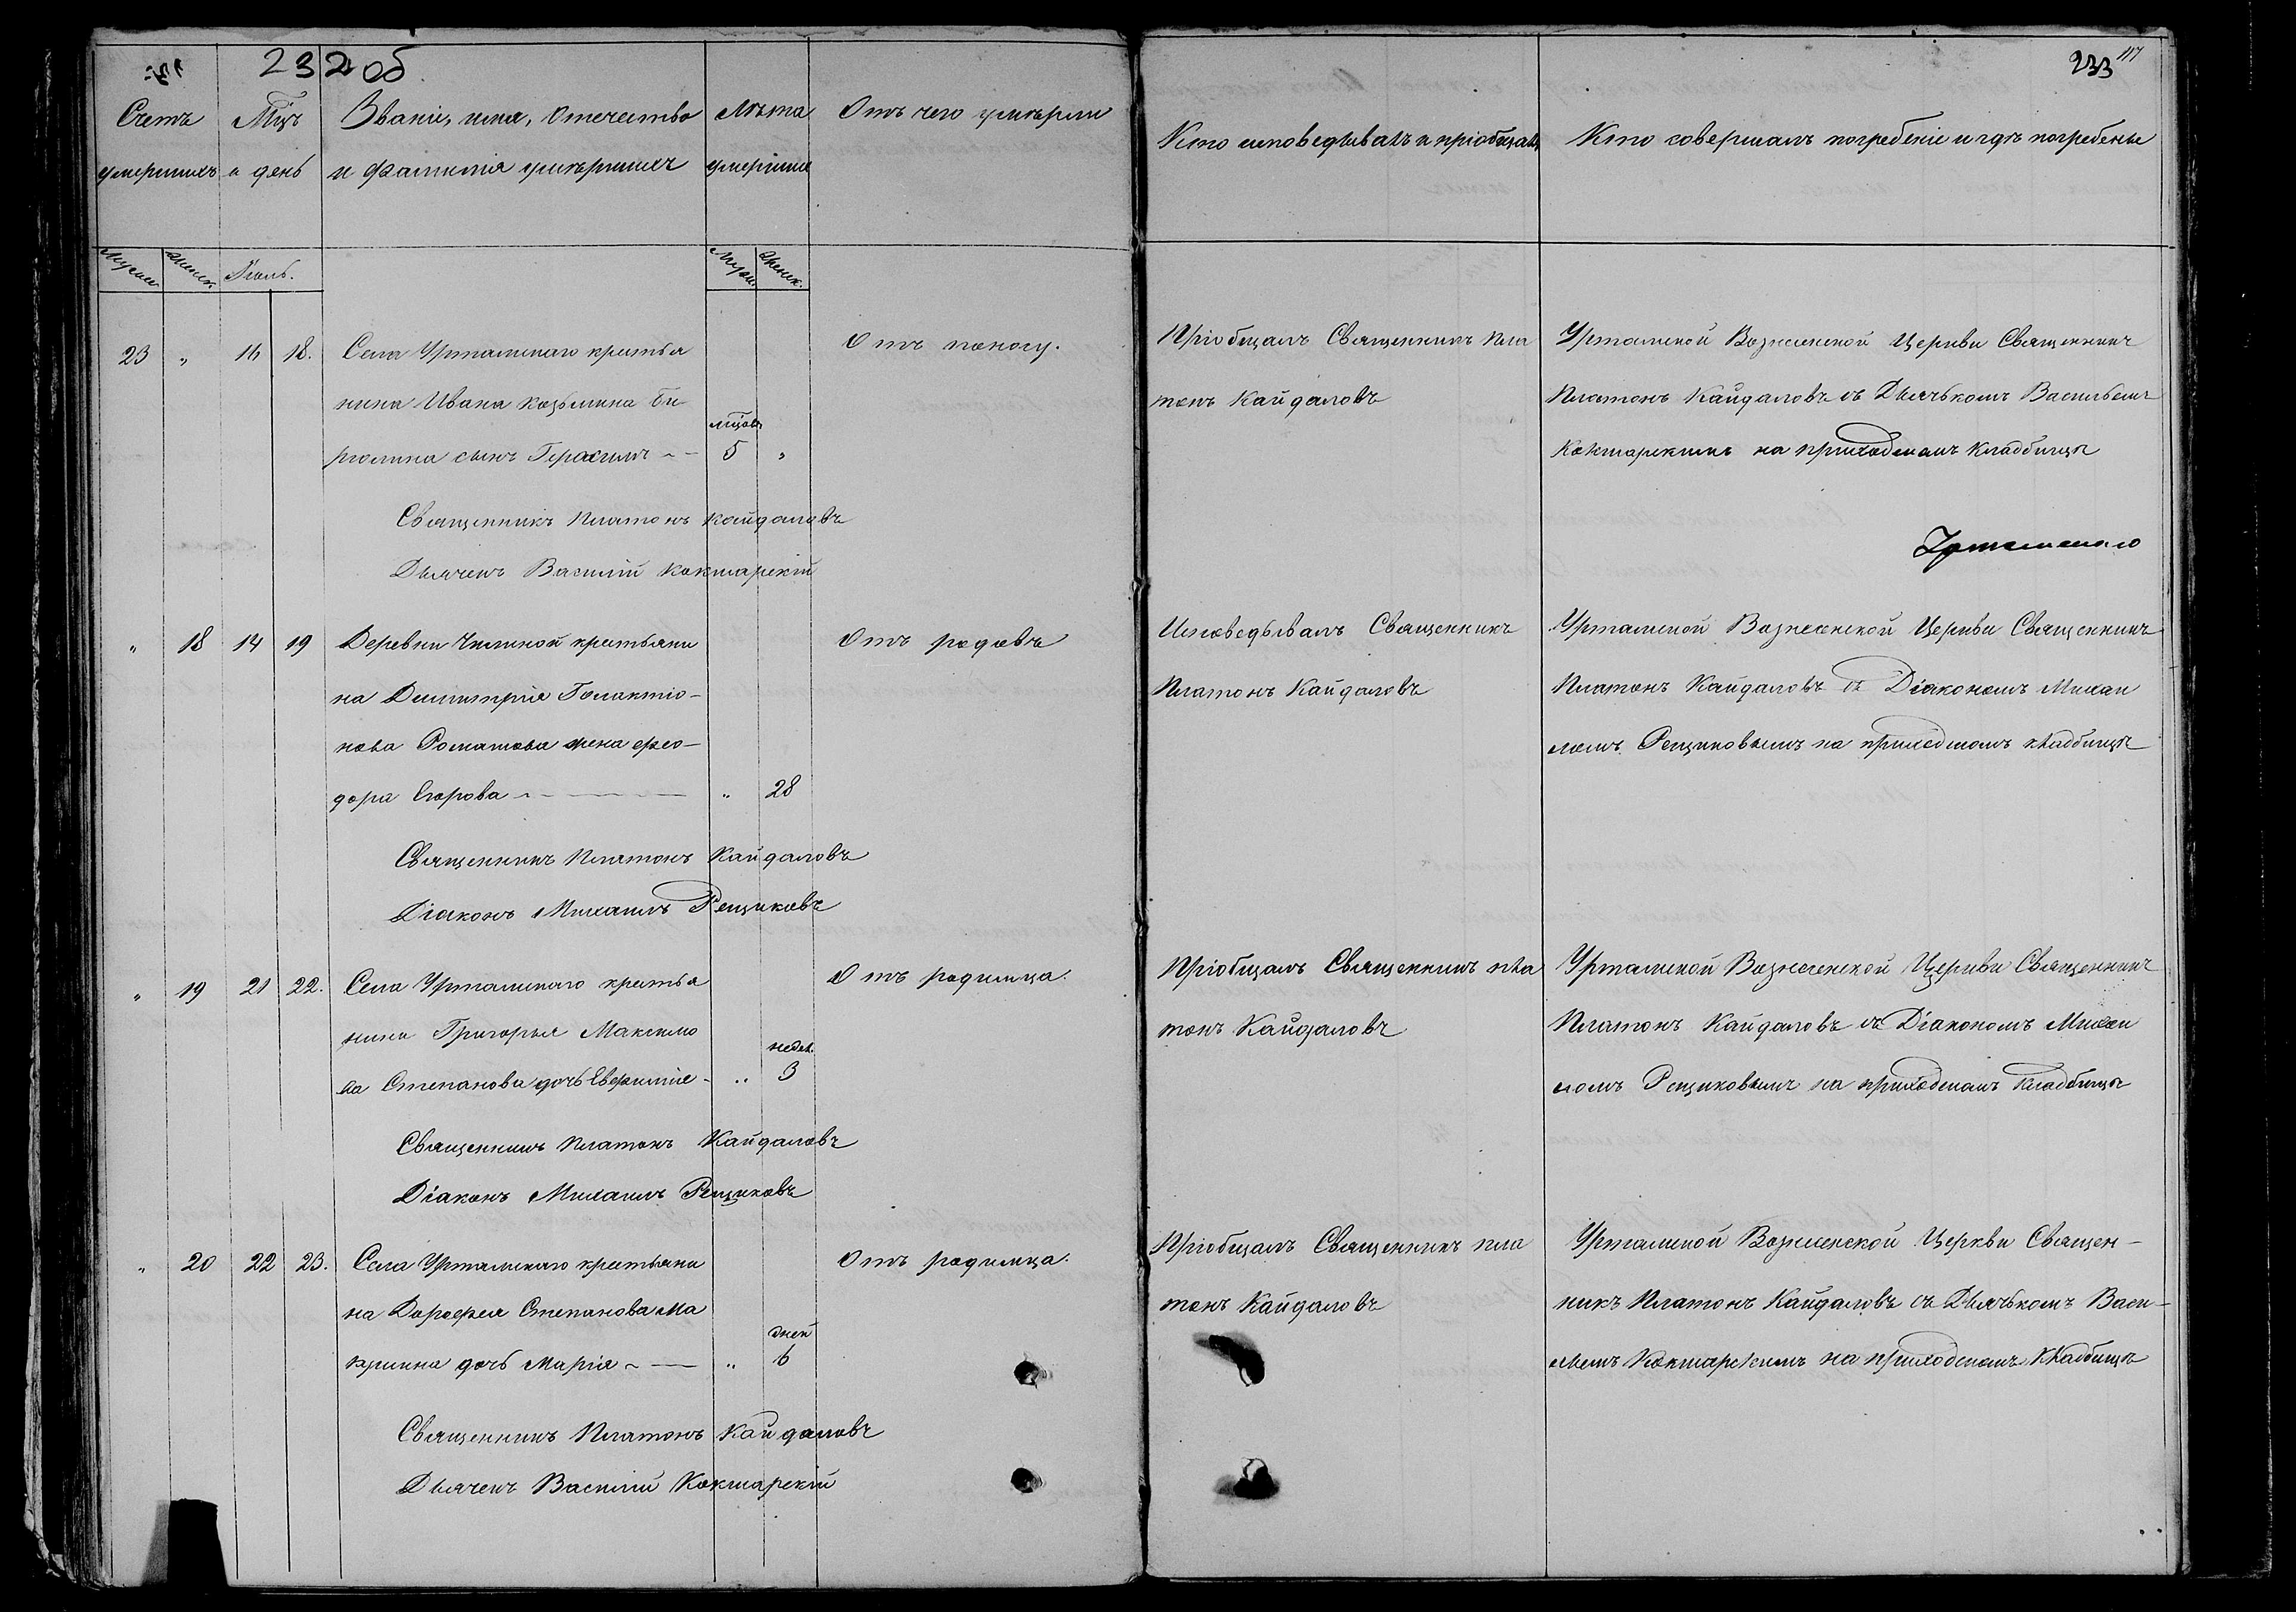 232 об.
233
117
Счетъ
умершихъ
Мцъ
и день
Званіе, имя, отечество
и фамилія умершихъ
Лѣта
умершихъ
Отъ чего умерли
Кто исповедывалъ и пріобщалъ
Кто совершалъ погребеніе и гдѣ погребены
Мужск.
Женск.
Іюль.
Мужск.
Женск.
23 „ 16 18.
Села Уртамскаго крестья
нина Ивана Козьмина Би
рюлина сынъ Герасимъ
мѣсцовъ
5 „
Отъ поносу.
Пріобщалъ Священникъ Пла
тонъ Кайдаловъ
Уртамской Вознесенской Церкви Священникъ
Платонъ Кайдаловъ съ Дьячькомъ Васильемъ
Кокшарскимъ на приходскомъ кладбищѣ
Священникъ Платонъ Кайдаловъ
Дьячекъ Василій Кокшарскій
Уртамскаго
„ 18 14 19
Деревни Чилиной крестьяни
на Димитрія Галактіо-
нова Романова жена Ѳео-
дора Егорова
„ 28
Отъ родовъ
Исповедывалъ Священникъ
Платонъ Кайдаловъ
Уртамской Вознесенской Церкви Священникъ
Платонъ Кайдаловъ съ Діакономъ Михаи
ломъ Рещиковымъ на приходскомъ кладбищѣ
Священникъ Платонъ Кайдаловъ
Діаконъ Михаилъ Рещиковъ
„ 19 21 22.
Села Уртамскаго крестья
нина Григорья Максимо
ва Степанова дочь Евфимія
недел.
„ 3
Отъ родимца.
Пріобщалъ Священникъ Пла
тонъ Кайдаловъ
Уртамской Вознесенской Церкви Священникъ
Платонъ Кайдаловъ съ Діакономъ Михаи
ломъ Рещиковымъ на приходскомъ кладбищѣ
Священникъ Платонъ Кайдаловъ
Діаконъ Михаилъ Рещиковъ
„ 20 22 23.
Села Уртамскаго крестьяни
на Дорофея Степанова Ма
крина дочь Марія
дней
„ 6
Отъ родимца.
Пріобщалъ Священникъ Пла
тонъ Кайдаловъ
Уртамской Вознесенской Церкви Священ-
никъ Платонъ Кайдаловъ съ Дьячькомъ Васи-
льемъ Кокшарскимъ на приходскомъ кладбищѣ
Священникъ Платонъ Кайдаловъ
Дьячекъ Василій Кокшарскій